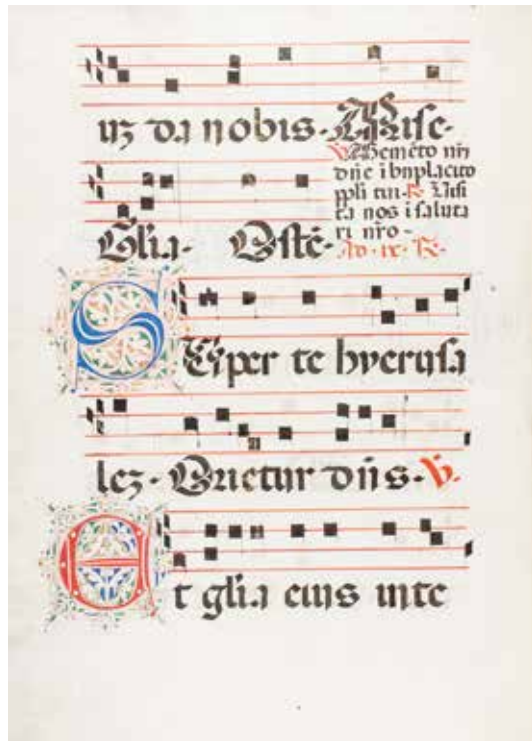 uz da nobis. Mise-
V. Memēto nrī
dn̄e ī bn̄placito
ppl̄i tui. R. Uisi
ta nos ī saluta
ri nr̄o.
Gl̄ia. Ostē-
Ad. ix. R.
SUper te hyerusa
lez. Orietur dn̄s. V.
Et gl̄ia eius in te